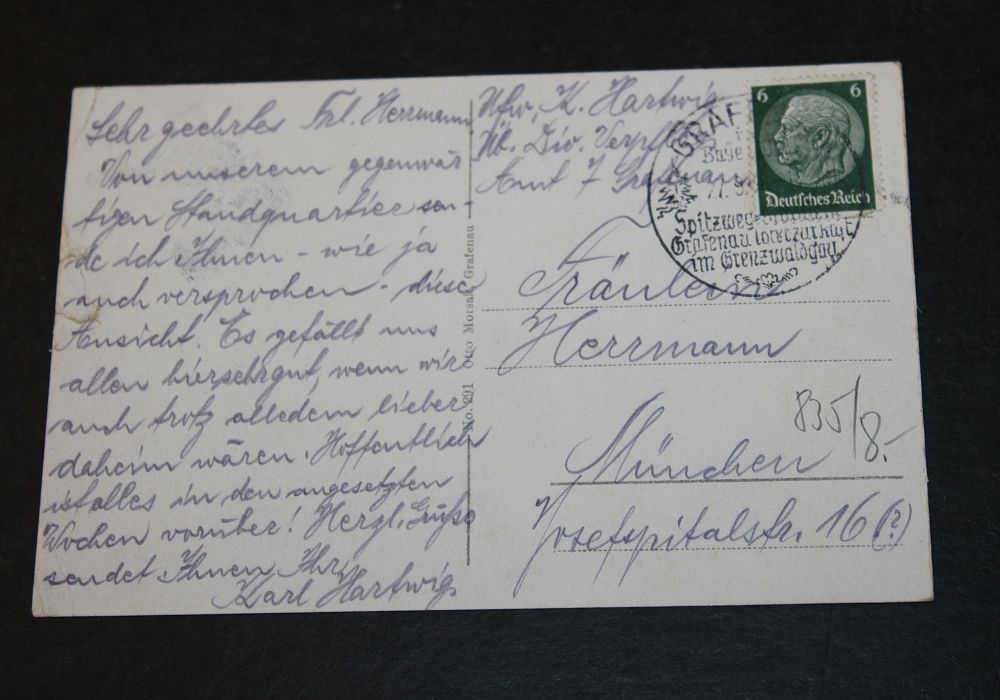 Sehr geehrtes Frl. Herrmann
Von unserem gegenwär
tigen Standquartier sen-
de ich Ihnen - wie ja
auch versprochen - diese
Ansicht. Es gefällt uns
allen hier sehr gut, wenn wir
auch trotz alledem lieber
daheim wären. Hoffentlich
ist alles in den angesetzten
Wochen vorüber! Herzl. Grüße
sendet Ihnen Ihr
Karl Hartwig
No. 291 Otto Morsak, Grafenau
Ufw. K. Hartwig
Üb. Div. Verpfl.
Amt 7 Grafenau
GRAF
Baye
Spitzweg
Grafenau
im Grenzwaldgau
6 6
Deutsches Reich
Fräulein
Herrmann
München
Josefspitalstr. 16 (?)
835/8.-